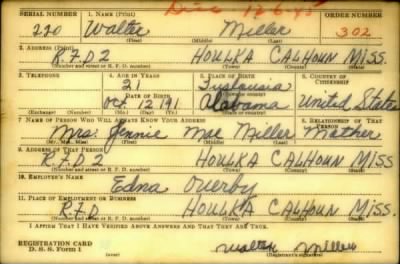 Disc 12-6-45
SERIAL NUMBER 1. NAME (Print) ORDER NUMBER
220 Walter Miller 302
(First) (Middle) (Last)
2. ADDRESS (Print)
R.F.D 2 HOULKA CALHOUN MISS.
(Number and street or R. F. D. number) (Town) (County) (State)
3. TELEPHONE 4. AGE IN YEARS 5. PLACE OF BIRTH 6. COUNTRY OF CITIZENSHIP
21
DATE OF BIRTH
Oct 12 191 Alabama United States
(Exchange) (Number) (Mo.) (Day) (Yr.) (State or country)
7. NAME OF PERSON WHO WILL ALWAYS KNOW YOUR ADDRESS 8. RELATIONSHIP OF THAT PERSON
Mrs. Jennie Mae Miller Mother
(Mr., Mrs., Miss) (First) (Middle) (Last)
9. ADDRESS OF THAT PERSON
R.F.D 2 HOULKA CALHOUN MISS
(Number and street or R. F. D. number) (Town) (County) (State)
10. EMPLOYER'S NAME
Edna Overby
11. PLACE OF EMPLOYMENT OR BUSINESS
R.F.D HOULKA CALHOUN MISS.
(Number and street or R. F. D. number) (Town) (County) (State)
I AFFIRM THAT I HAVE VERIFIED ABOVE ANSWERS AND THAT THEY ARE TRUE.
REGISTRATION CARD
D. S. S. Form 1 (over) Walter Miller
(Registrant's signature)